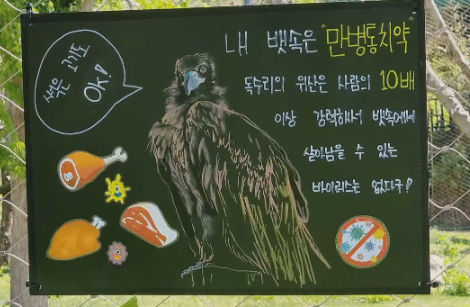 썩은 고기도
OK!
내 뱃속은 "만병통치약"
독수리의 위산은 사람의 10배
이상 강력해서 뱃속에서
살아남을 수 있는
바이러스는 없다구!